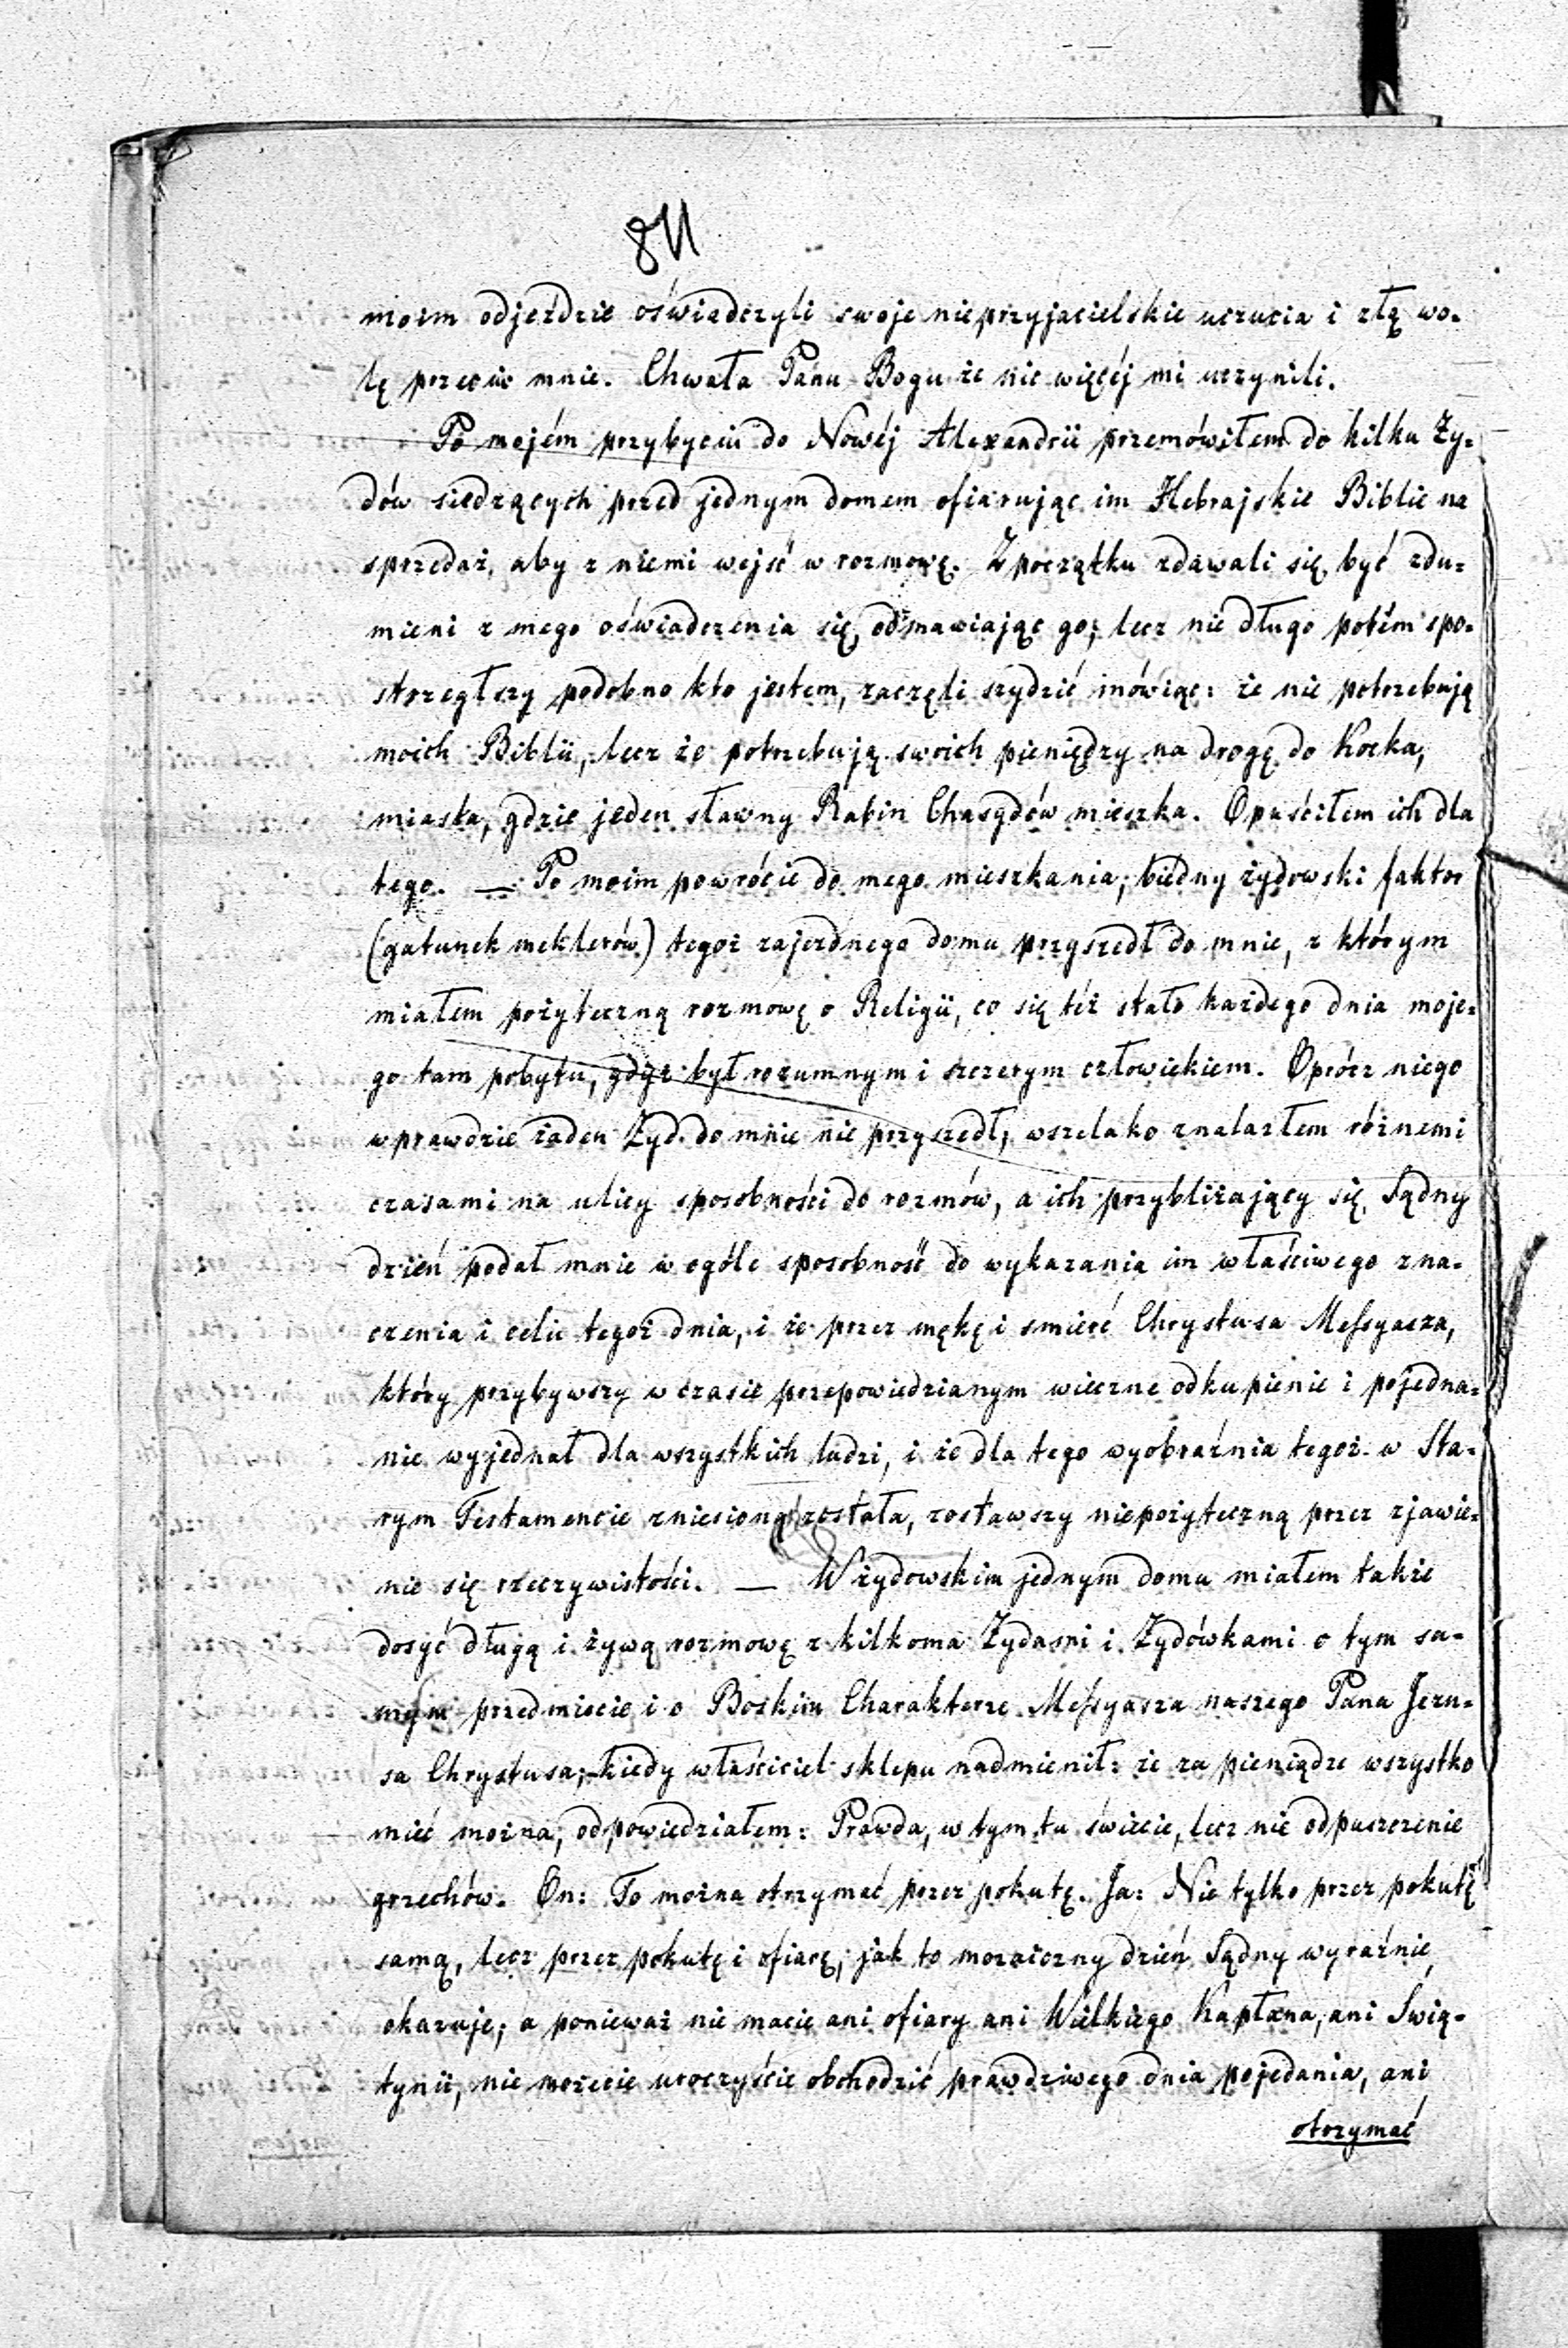 811
moim odjeździe oświadczyli swoje nieprzyjacielskie uczucia i złą wo-
lę przeciw mnie. Chwała Panu Bogu że nic więcéj mi uczynili.
Po mojém przybyciu do Nowéj Alexandrii przemówiłem do kilku Ży-
dów siedzących przed jednym domem ofiarując im Hebrajskie Biblie na
sprzedaż, aby z niemi wejść w rozmowę. Zpoczątku zdawali się być zdu-
mieni z mego oświadczenia się, odmawiając go; lecz nie długo potém spo-
strzegłszy podobno kto jestem, zaczęli szydzić mówiąc: że nie potrzebują
moich Biblii, lecz że potrzebują swoich pieniędzy na drogę do Kocka,
miasta, gdzie jeden sławny Rabin Chasydów mieszka. Opuściłem ich dla
tego. — Po moim powrócie do mego mieszkania, biedny żydowski faktor
(gatunek meklerów) tegoż zajezdnego domu przyszedł do mnie, z którym
miałem pożyteczną rozmowę o Religii, co się też stało każdego dnia moje-
go tam pobytu, gdyż był rozumnym i szczerym człowiekiem. Oprócz niego
wprawdzie żaden Żyd do mnie nie przyszedł, wszelako znalazłem różnemi
czasami na ulicy sposobności do rozmów, a ich przybliżający się Sądny
dzień podał mnie w ogóle sposobność do wykazania im właściwego zna-
czenia i celu tegoż dnia, i że przez mękę i smierć Chrystusa Messyasza,
który przybywszy w czasie przepowiedzianym wieczne odkupienie i pojedna-
nie wyjednał dla wszystkich ludzi, i że dla tego wyobraźnia tegoż w Sta-
rym Testamencie zniesioną została, zostawszy niepożyteczną przez zjawie-
nie się rzeczywistości. — W żydowskim jednym domu miałem także
dosyć długą i żywą rozmowę z kilkoma Żydami i Żydówkami o tym sa-
mym przedmiocie i o Boskim Charakterze Messyasza naszego Pana Jezu-
sa Chrystusa; kiedy właściciel sklepu nadmienił: że za pieniądze wszystko
mieć można, odpowiedziałem: Prawda, w tym tu świecie, lecz nie odpuszczenie
grzechów. On: To można otrzymać przez pokutę. Ja: Nie tylko przez pokutę
samą, lecz przez pokutę i ofiarę, jak to mozaiczny dzień Sądny wyraźnie
okazuje; a ponieważ nie macie ani ofiary ani Wielkiego Kapłana, ani Świą-
tynii, nie możecie uroczyście obchodzić prawdziwego dnia pojedania, ani
otrzymać